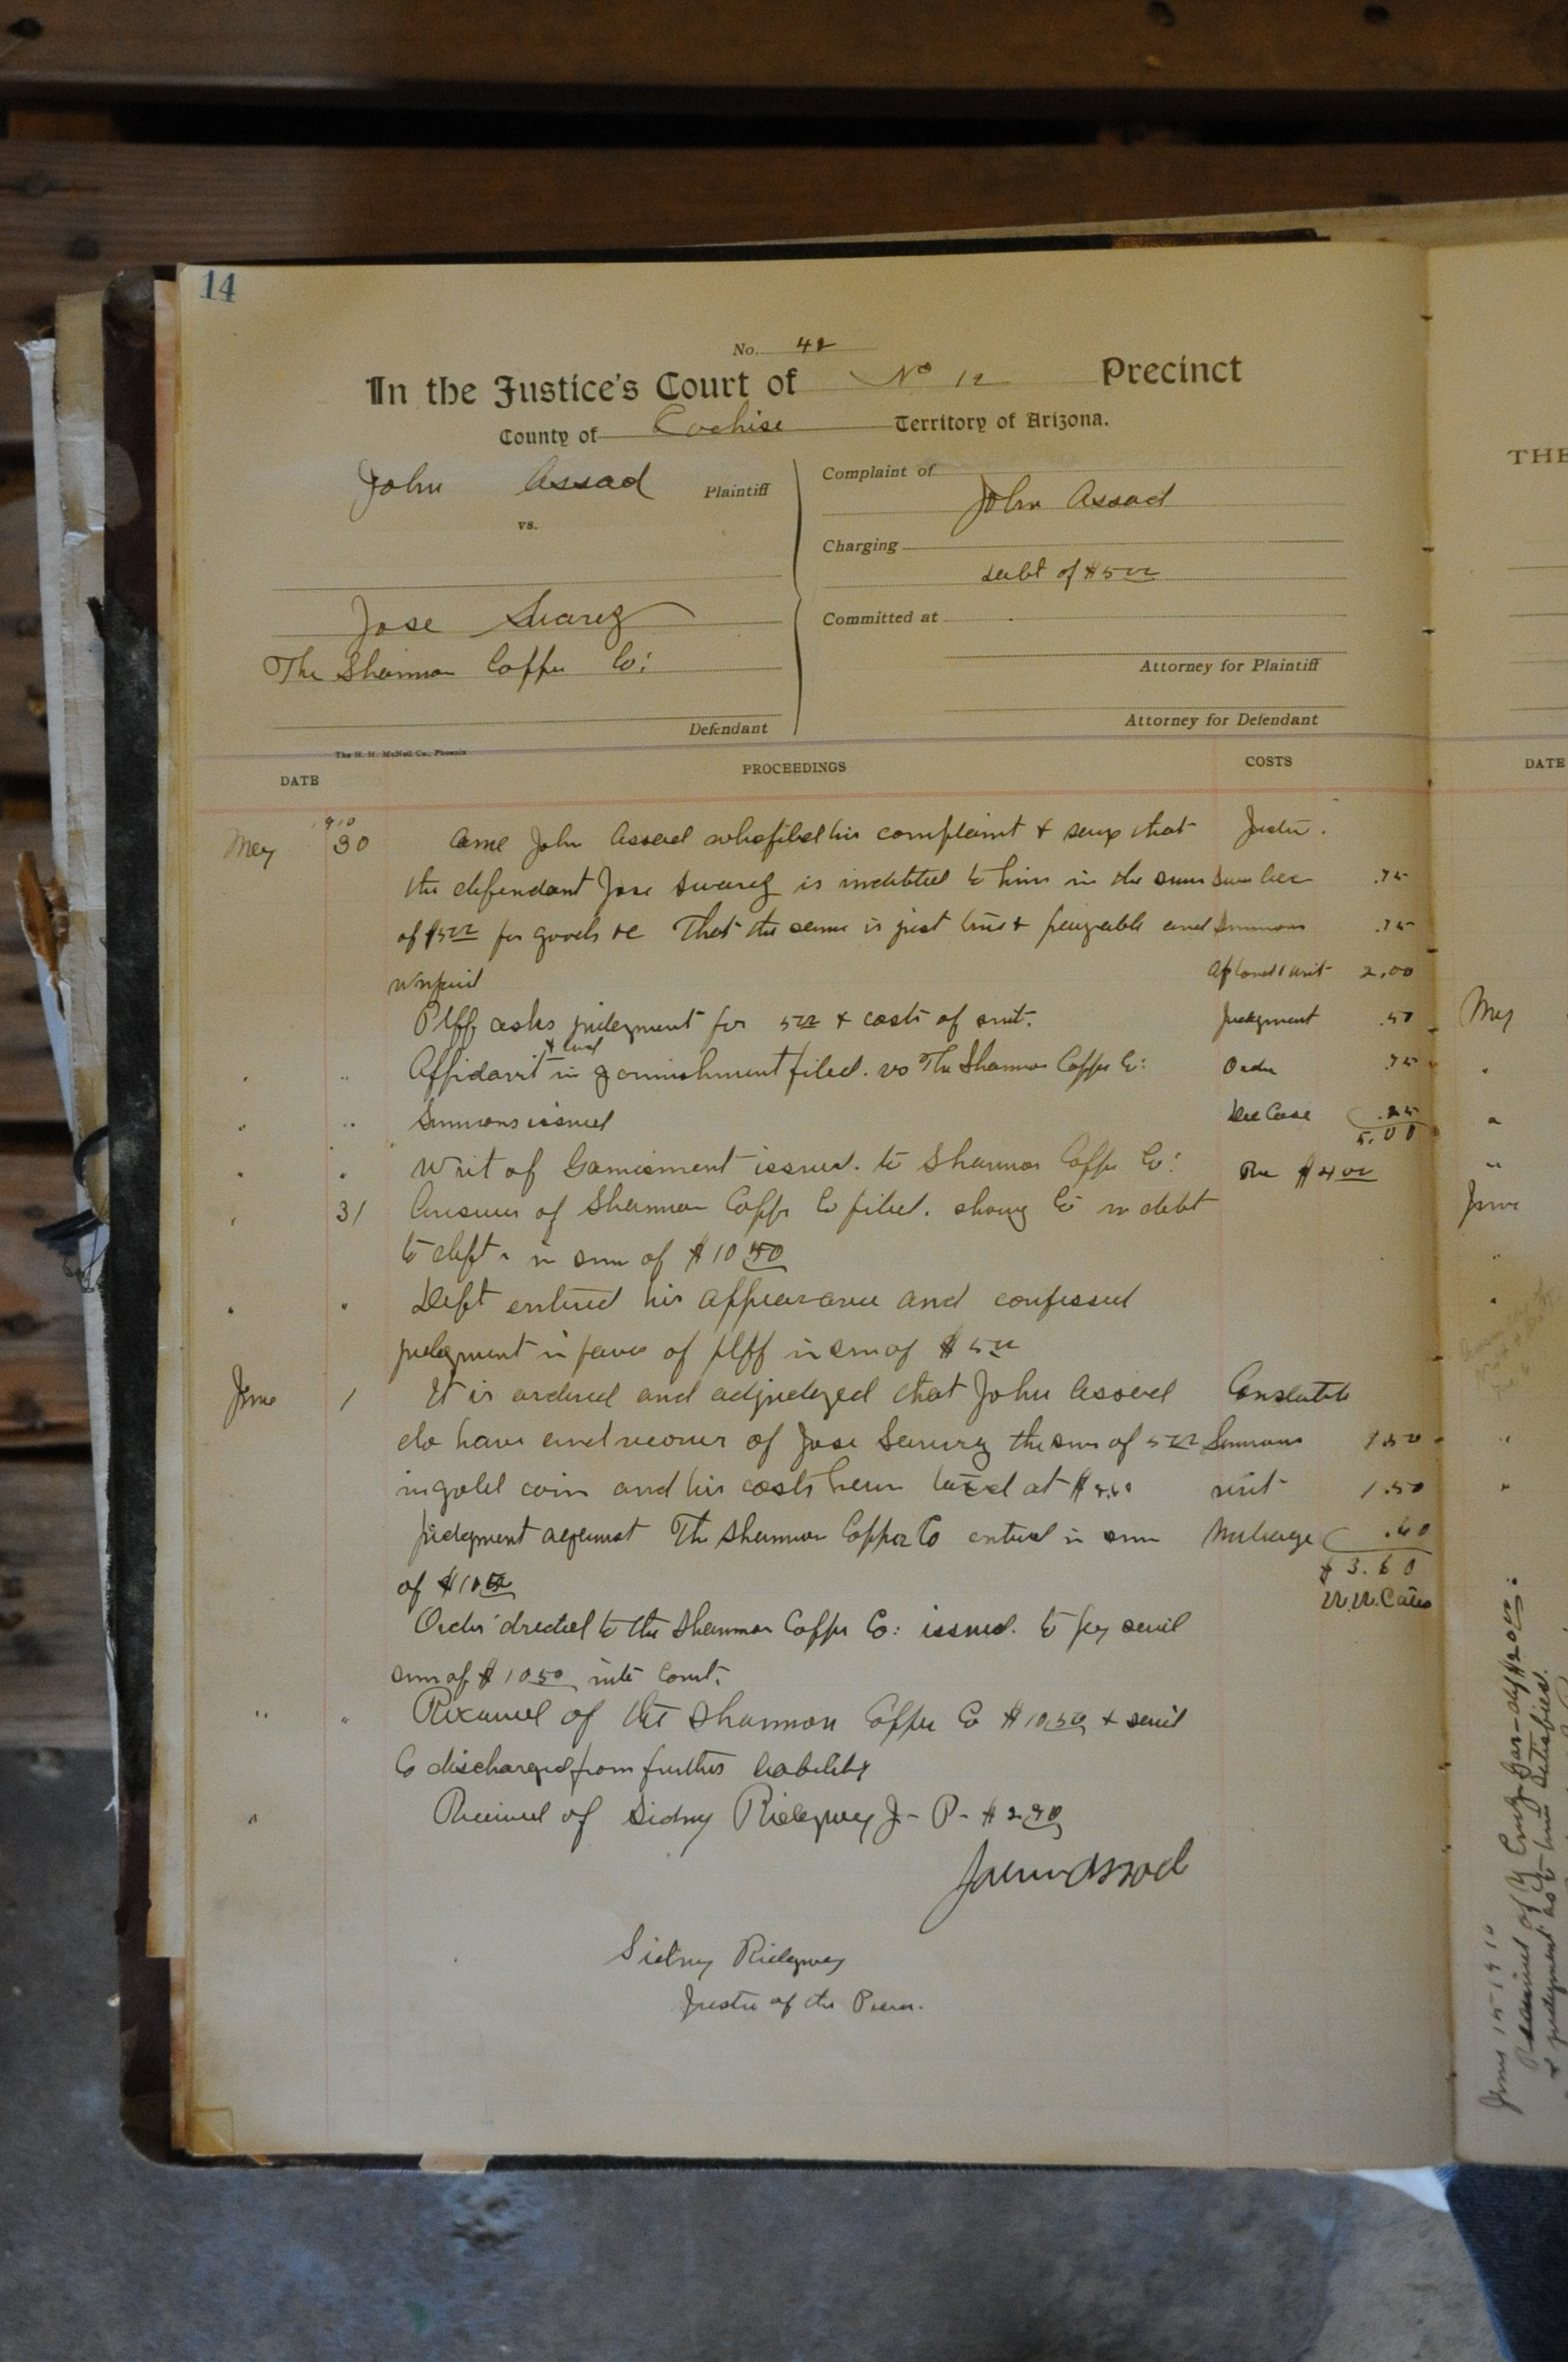 14
No. 42
In the Justice's Court of No 12 Precinct
County of Cochise Territory of Arizona.
John Assad Plaintiff
vs.
Jose Suarez
The Shannon Copper Co:
Defendant
Complaint of
John Assad
Charging
debt of $5
Committed at
Attorney for Plaintiff
Attorney for Defendant
The H. H. McNeil Co., Phoenix
DATE PROCEEDINGS COSTS
1910
May 30 Came John Assad who filed his complaint & says that Justice.
the defendant Jose Suarez is indebted to him in the sum .75
of $5 for goods &c That the same is just due & payable and Summons .75
unpaid Af bond & writ 2.00
Plff asks judgment for 5 & costs of suit. Judgment .50
& bond
Affidavit in garnishment filed. vs The Shannon Copper Co: Order .75
Summons issued Doc Case .25
5.00
Writ of Garnisment issued. to Shannon Copper Co: $4 00
31 Answer of Shannon Copper Co filed. showg Co indebt
to deft in sum of $10 50
Deft entered his appearance and confessed
judgment in favor of plff in sum of $5
June 1 It is ordered and adjudged that John Assad Constable
do have and recover of Jose Suarez the sum of 5 Summons 1.50
in gold coin and his costs herein taxed at $ writ 1.50
Judgment against The Shannon Copper Co entered in sum Mileage .60
of $10 50 $3.60
Order directed to the Shannon Copper Co: issued. to pay said
sum of $10 50 into Court.
" " Received of the Shannon Copper Co $10.50 & said
Co discharged from further liability
" Received of Sidney Ridgway J- P- $2.90
John Assad
Sidney Ridgway
Justice of the Peace.
THE
DATE
May
June
June 15 1910
Received of
& judgment
satisfied.